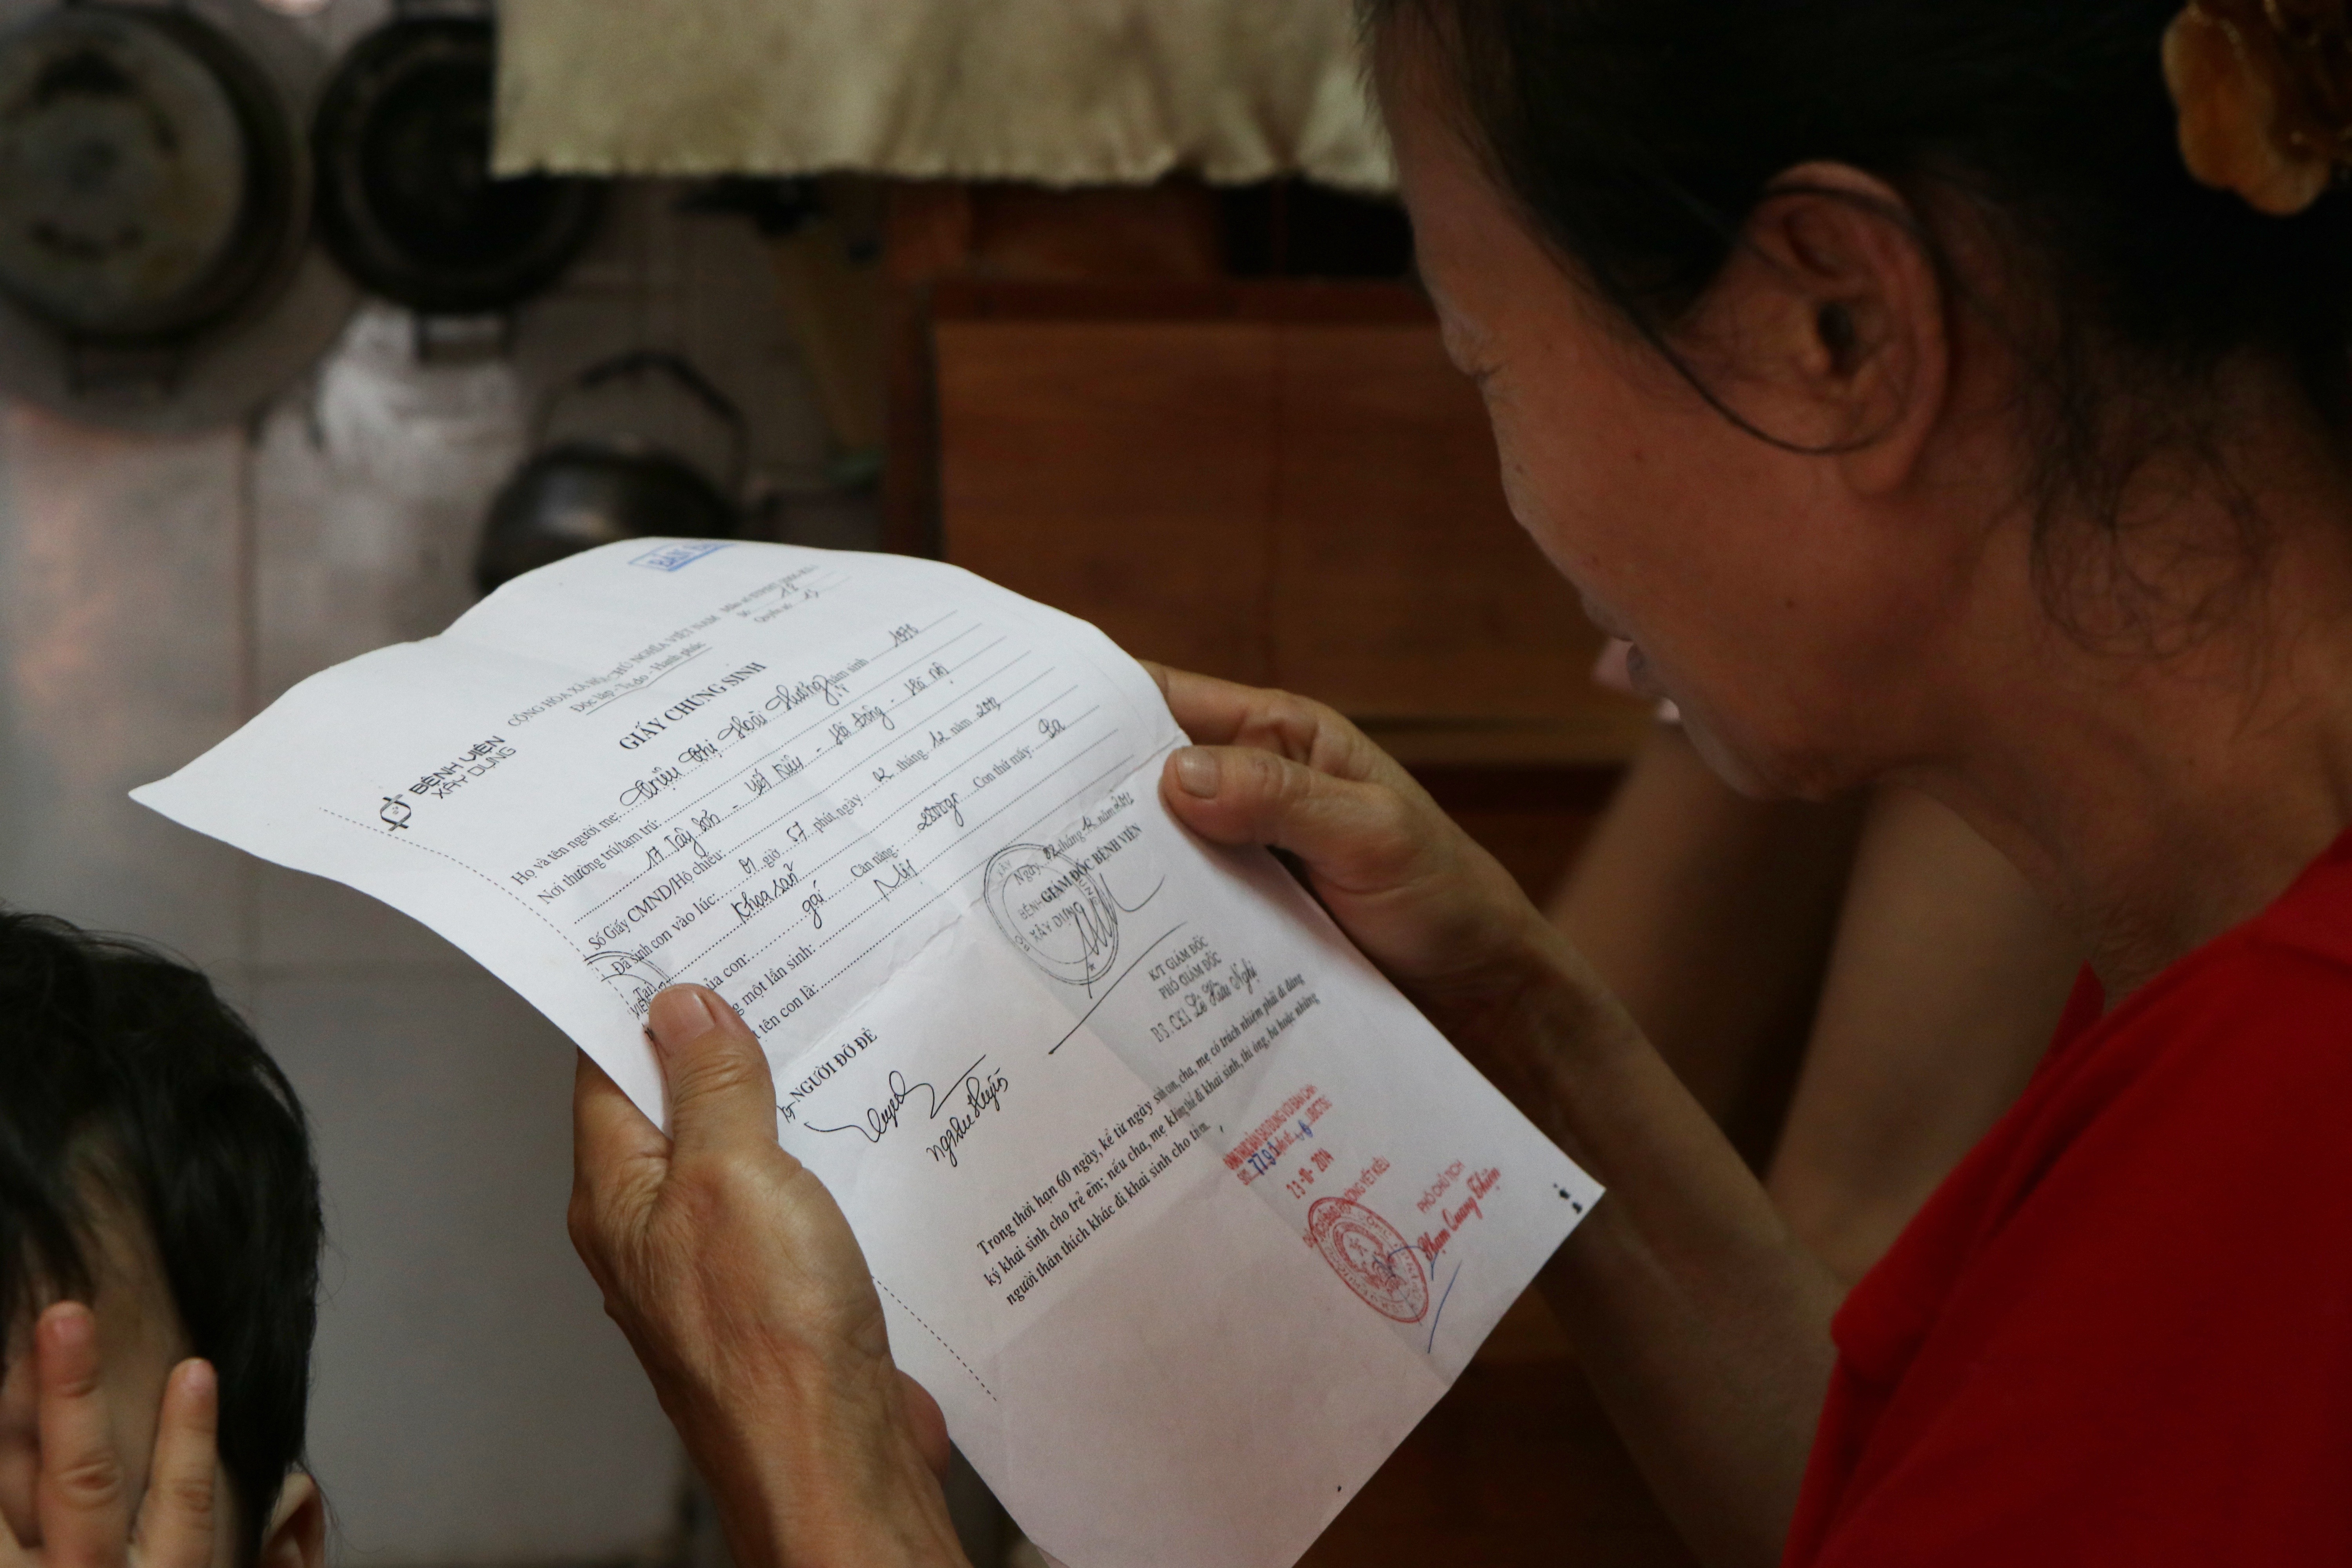 BẢN
CỘNG HÒA XÃ HỘI CHỦ NGHĨA VIỆT NAM
Độc lập - Tự do - Hạnh phúc
Số: 18
Quyển số: 15
BỆNH VIỆN
XÂY DỰNG
GIẤY CHỨNG SINH
Họ và tên người mẹ: Triệu Thị Hoài Hương năm sinh 1976
Nơi thường trú/tạm trú:
17 Tây Sơn - Yết Kiêu - Hà Đông - Hà Nội
Số Giấy CMND/Hộ chiếu:
Đã sinh con vào lúc: giờ 57 phút, ngày 02 tháng 12 năm
Tại: Khoa sản
của con: gái Cân nặng: 2800gr Con thứ mấy: Ba
một lần sinh: Một
tên con là:
Ngày 02 tháng 12 năm
NGƯỜI ĐỠ ĐẺ
GIÁM ĐỐC BỆNH VIỆN
BỆNH
XÂY DỰNG
K/T GIÁM ĐỐC
PHÓ GIÁM ĐỐC
Trong thời hạn 60 ngày, kể từ ngày sinh con, cha, mẹ có trách nhiệm phải đi đăng
ký khai sinh cho trẻ em; nếu cha, mẹ không thể đi khai sinh, thì ông, bà hoặc những
người thân thích khác đi khai sinh cho trẻ em.
23-10-2014
PHÓ CHỦ TỊCH
Phạm Quang Thiện